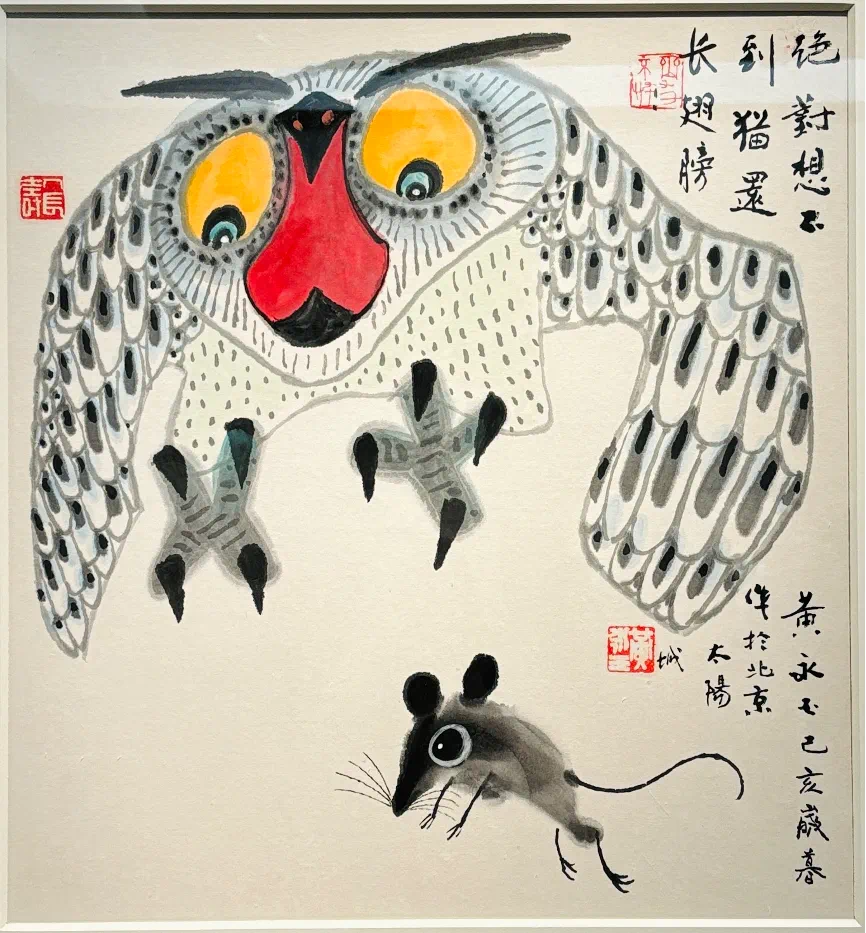 绝對想不
到猫還
长翅膀
黄永玉己亥歲暮
作於北京
太陽
城